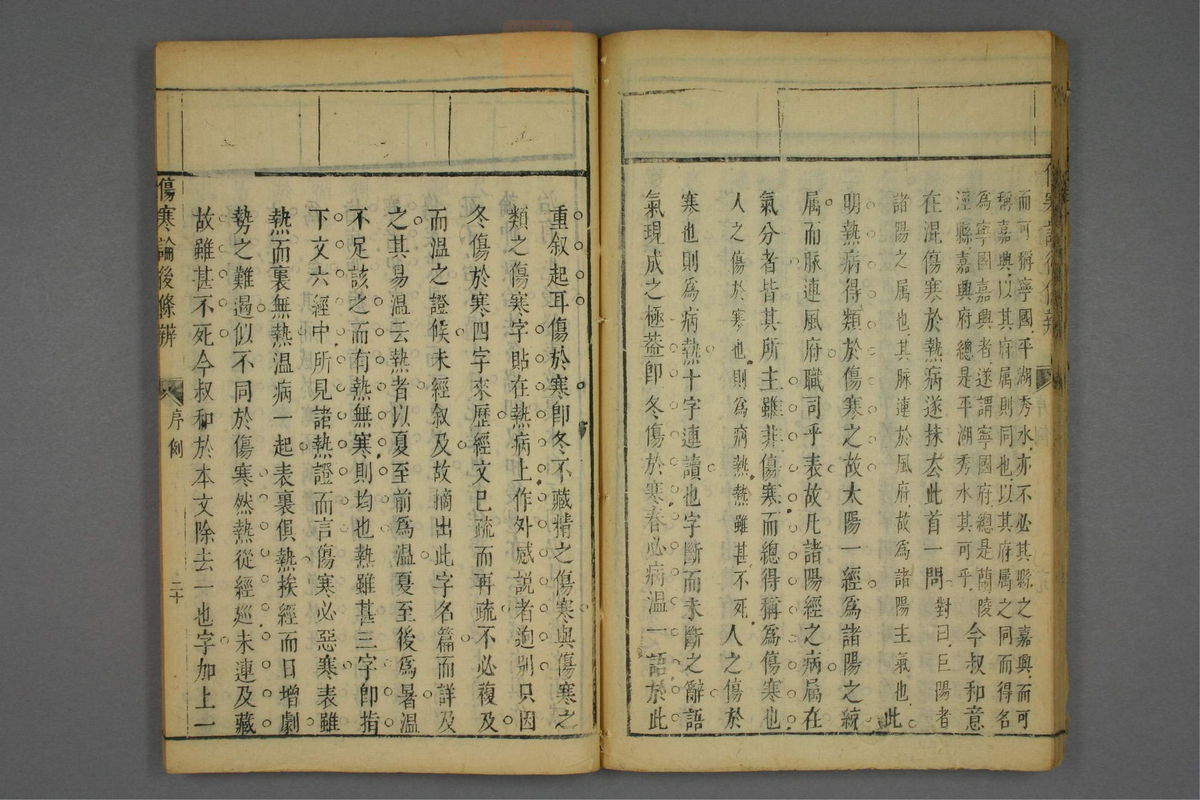 而可稱寧國平湖秀水亦不必其縣之嘉興而可
稱嘉興以其府屬則同也以其府屬之同而得名
為寧國嘉興者遂謂寧國府總是蘭陵
涇縣嘉興府總是平湖秀水其可乎今叔和意
在混傷寒於熱病遂抹去此首一問對曰巨陽者
諸陽之属也其脉連於風府故爲諸陽主氣也此
明熱病得類於傷寒之故太陽一經爲諸陽之統
属而脉連風府職司乎表故凡諸陽經之病属在
氣分者皆其所主雖非傷寒而總得稱爲傷寒也
人之傷於寒也則爲病熱熱雖甚不死人之傷於
寒也則爲病熱十字連讀也字斷而未斷之辭語
氣現成之極葢卽冬傷於寒春必病溫一語於此
重叙起耳傷於寒卽冬不藏精之傷寒與傷寒之
類之傷寒字貼在熱病上作外感説者逈別只因
冬傷於寒四字來歷經文已疏而再疏不必複及
而溫之證候未經叙及故摘出此字名篇而詳及
之其易溫云熱者以夏至前爲溫夏至後爲暑溫
不足該之而有熱無寒則均也熱雖甚三字卽指
下文六經中所見諸熱證而言傷寒必惡寒表雖
熱而裏無熱溫病一起表裏俱熱挨經而日增劇
勢之難遏似不同於傷寒然熱從經廵未連及藏
故雖甚不死今叔和於本文除去一也字加上一
傷寒論後條辨
序例
二十